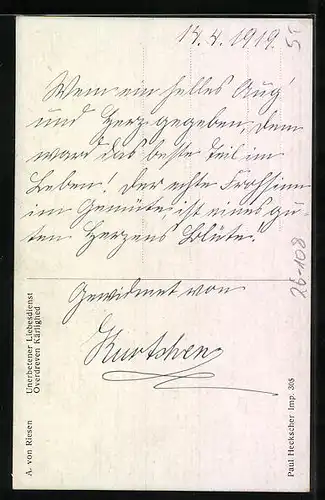 14.4.1919.
Wem ein helles Aug'
und Herz gegeben, dem
ward das beste Teil im
Leben! Der echte Frohsinn
im Gemüte, ist eines gu-
ten Herzens Blüte!
Gewidmet von
Kurtchen
26-108
A. von Riesen
Unerbetener Liebesdienst
Overdreven Kärlighed
Paul Heckscher Imp. 365